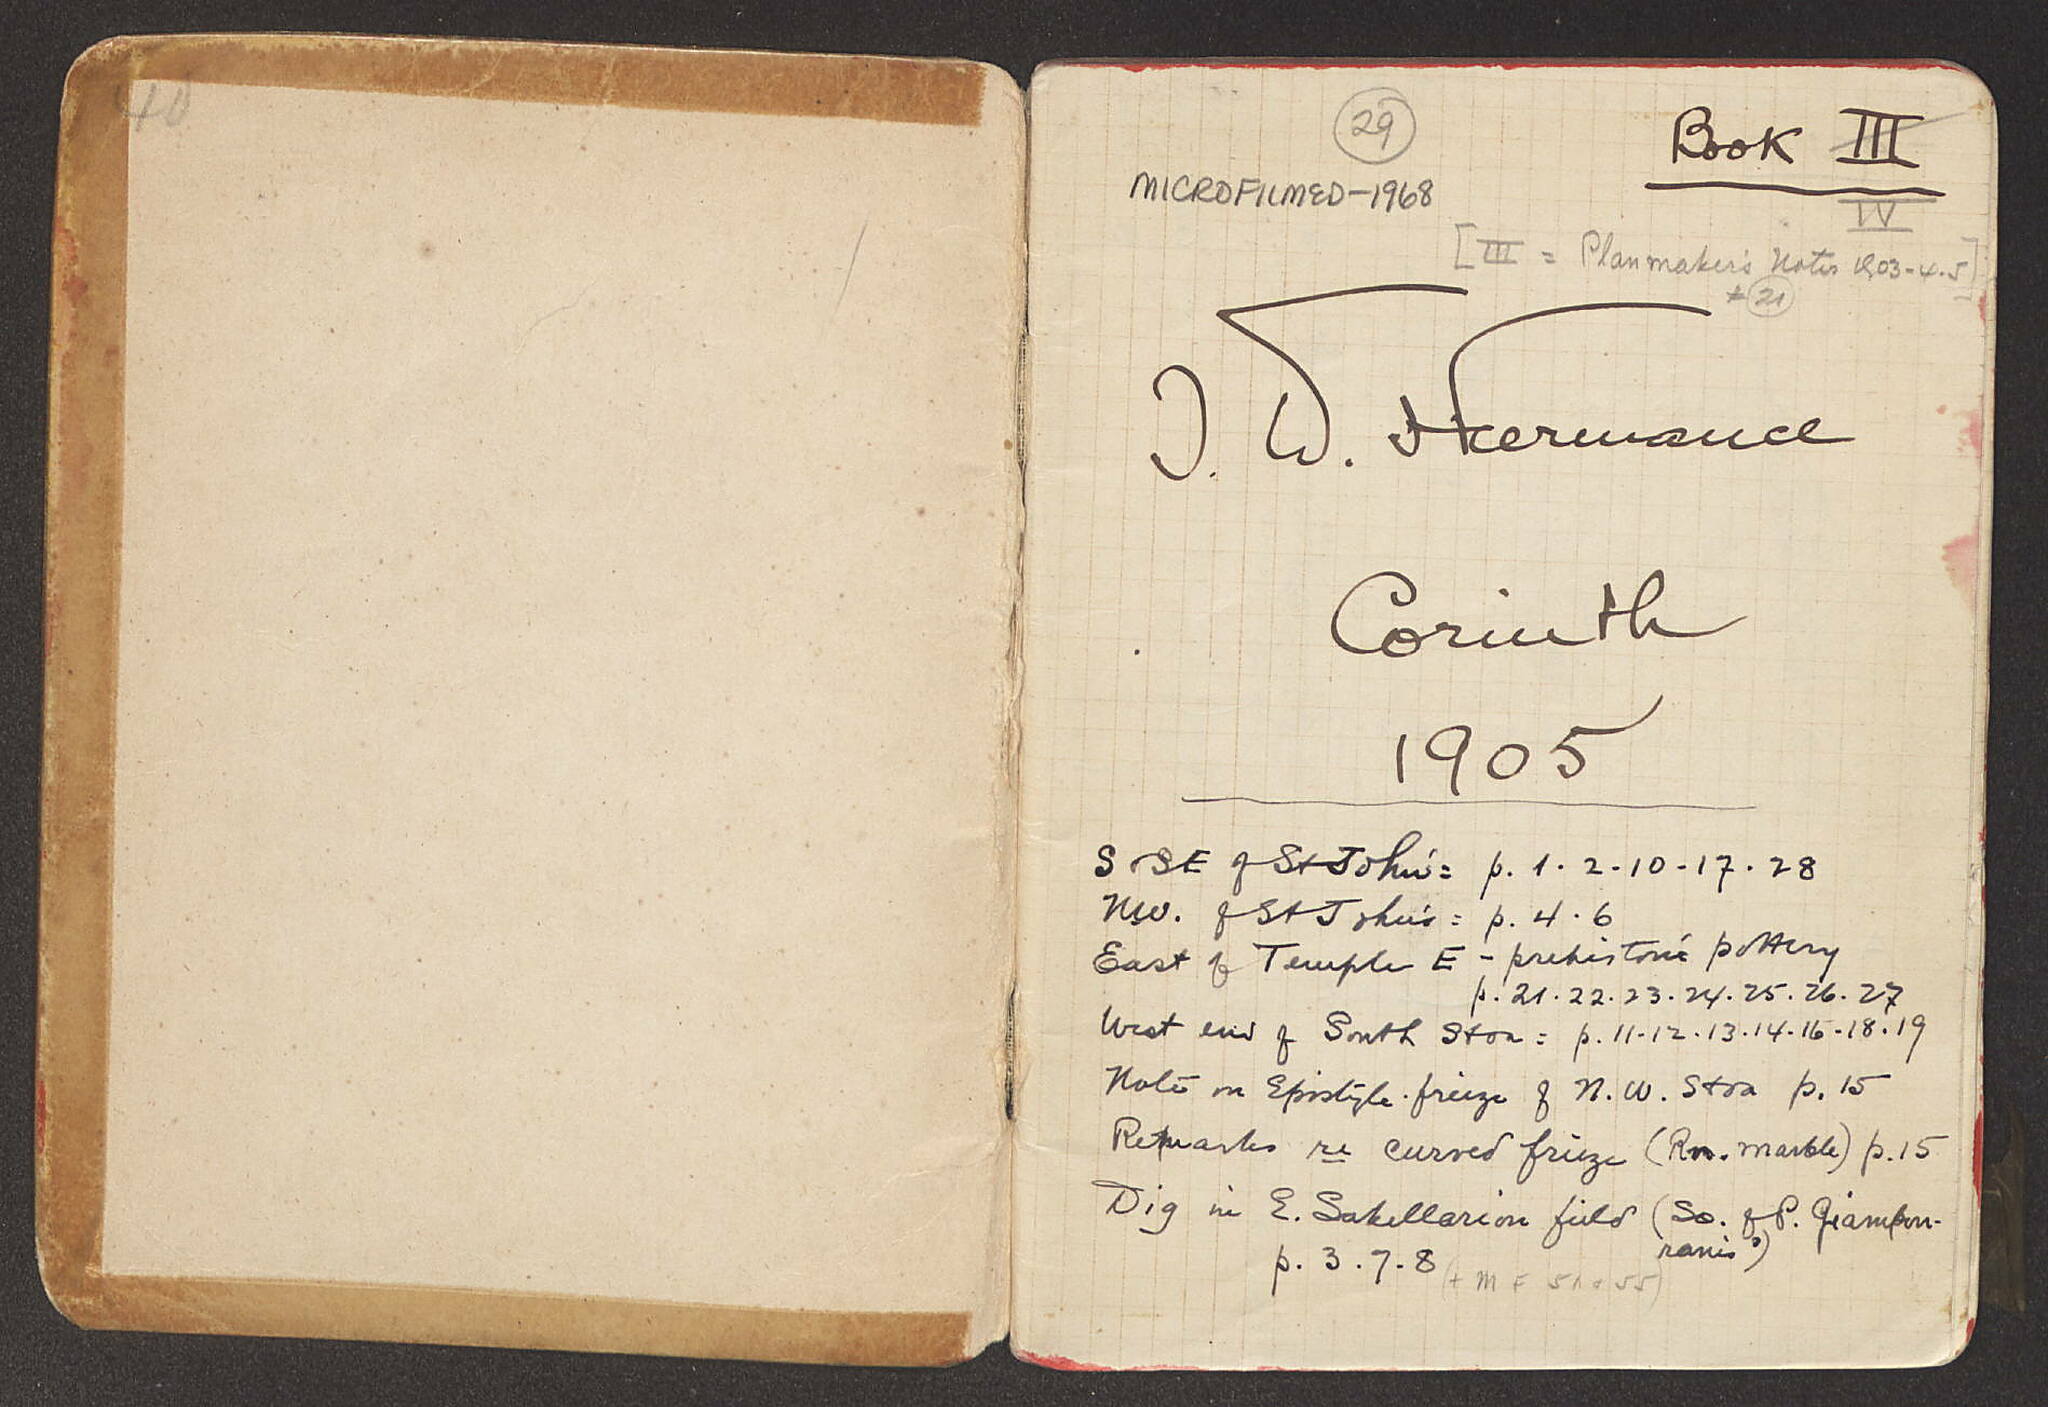 40
29
Book III
MICROFILMED-1968
IV
[III = Planmaker's Notes 1903-4-5]
21
J. W. Hermance
Corinth
1905
S & SE of St John's = p. 1 . 2 - 10 - 17 . 28
NW. of St John's = p. 4 . 6
East of Temple E - prehistoric pottery
p. 21 . 22 . 23 . 24 . 25 . 26 . 27
West end of South Stoa = p. 11-12.13.14.16-18.19
Note on Epistyle-frieze of N.W. Stoa p. 15
Remarks re curved frieze (Rn. marble) p.15
Dig in E. Sakellarion field (So. of P. Giambou-
ranis')
p. 3 . 7 - 8